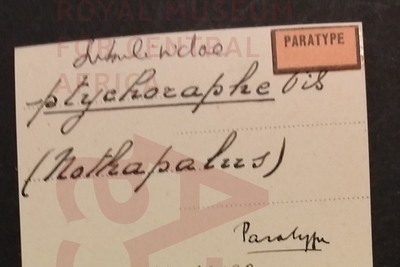 ROYAL MUSEUM
FOR CENTRAL
AFRICA
PARATYPE
ptychoraphe
(Nothapalus)
Paratype